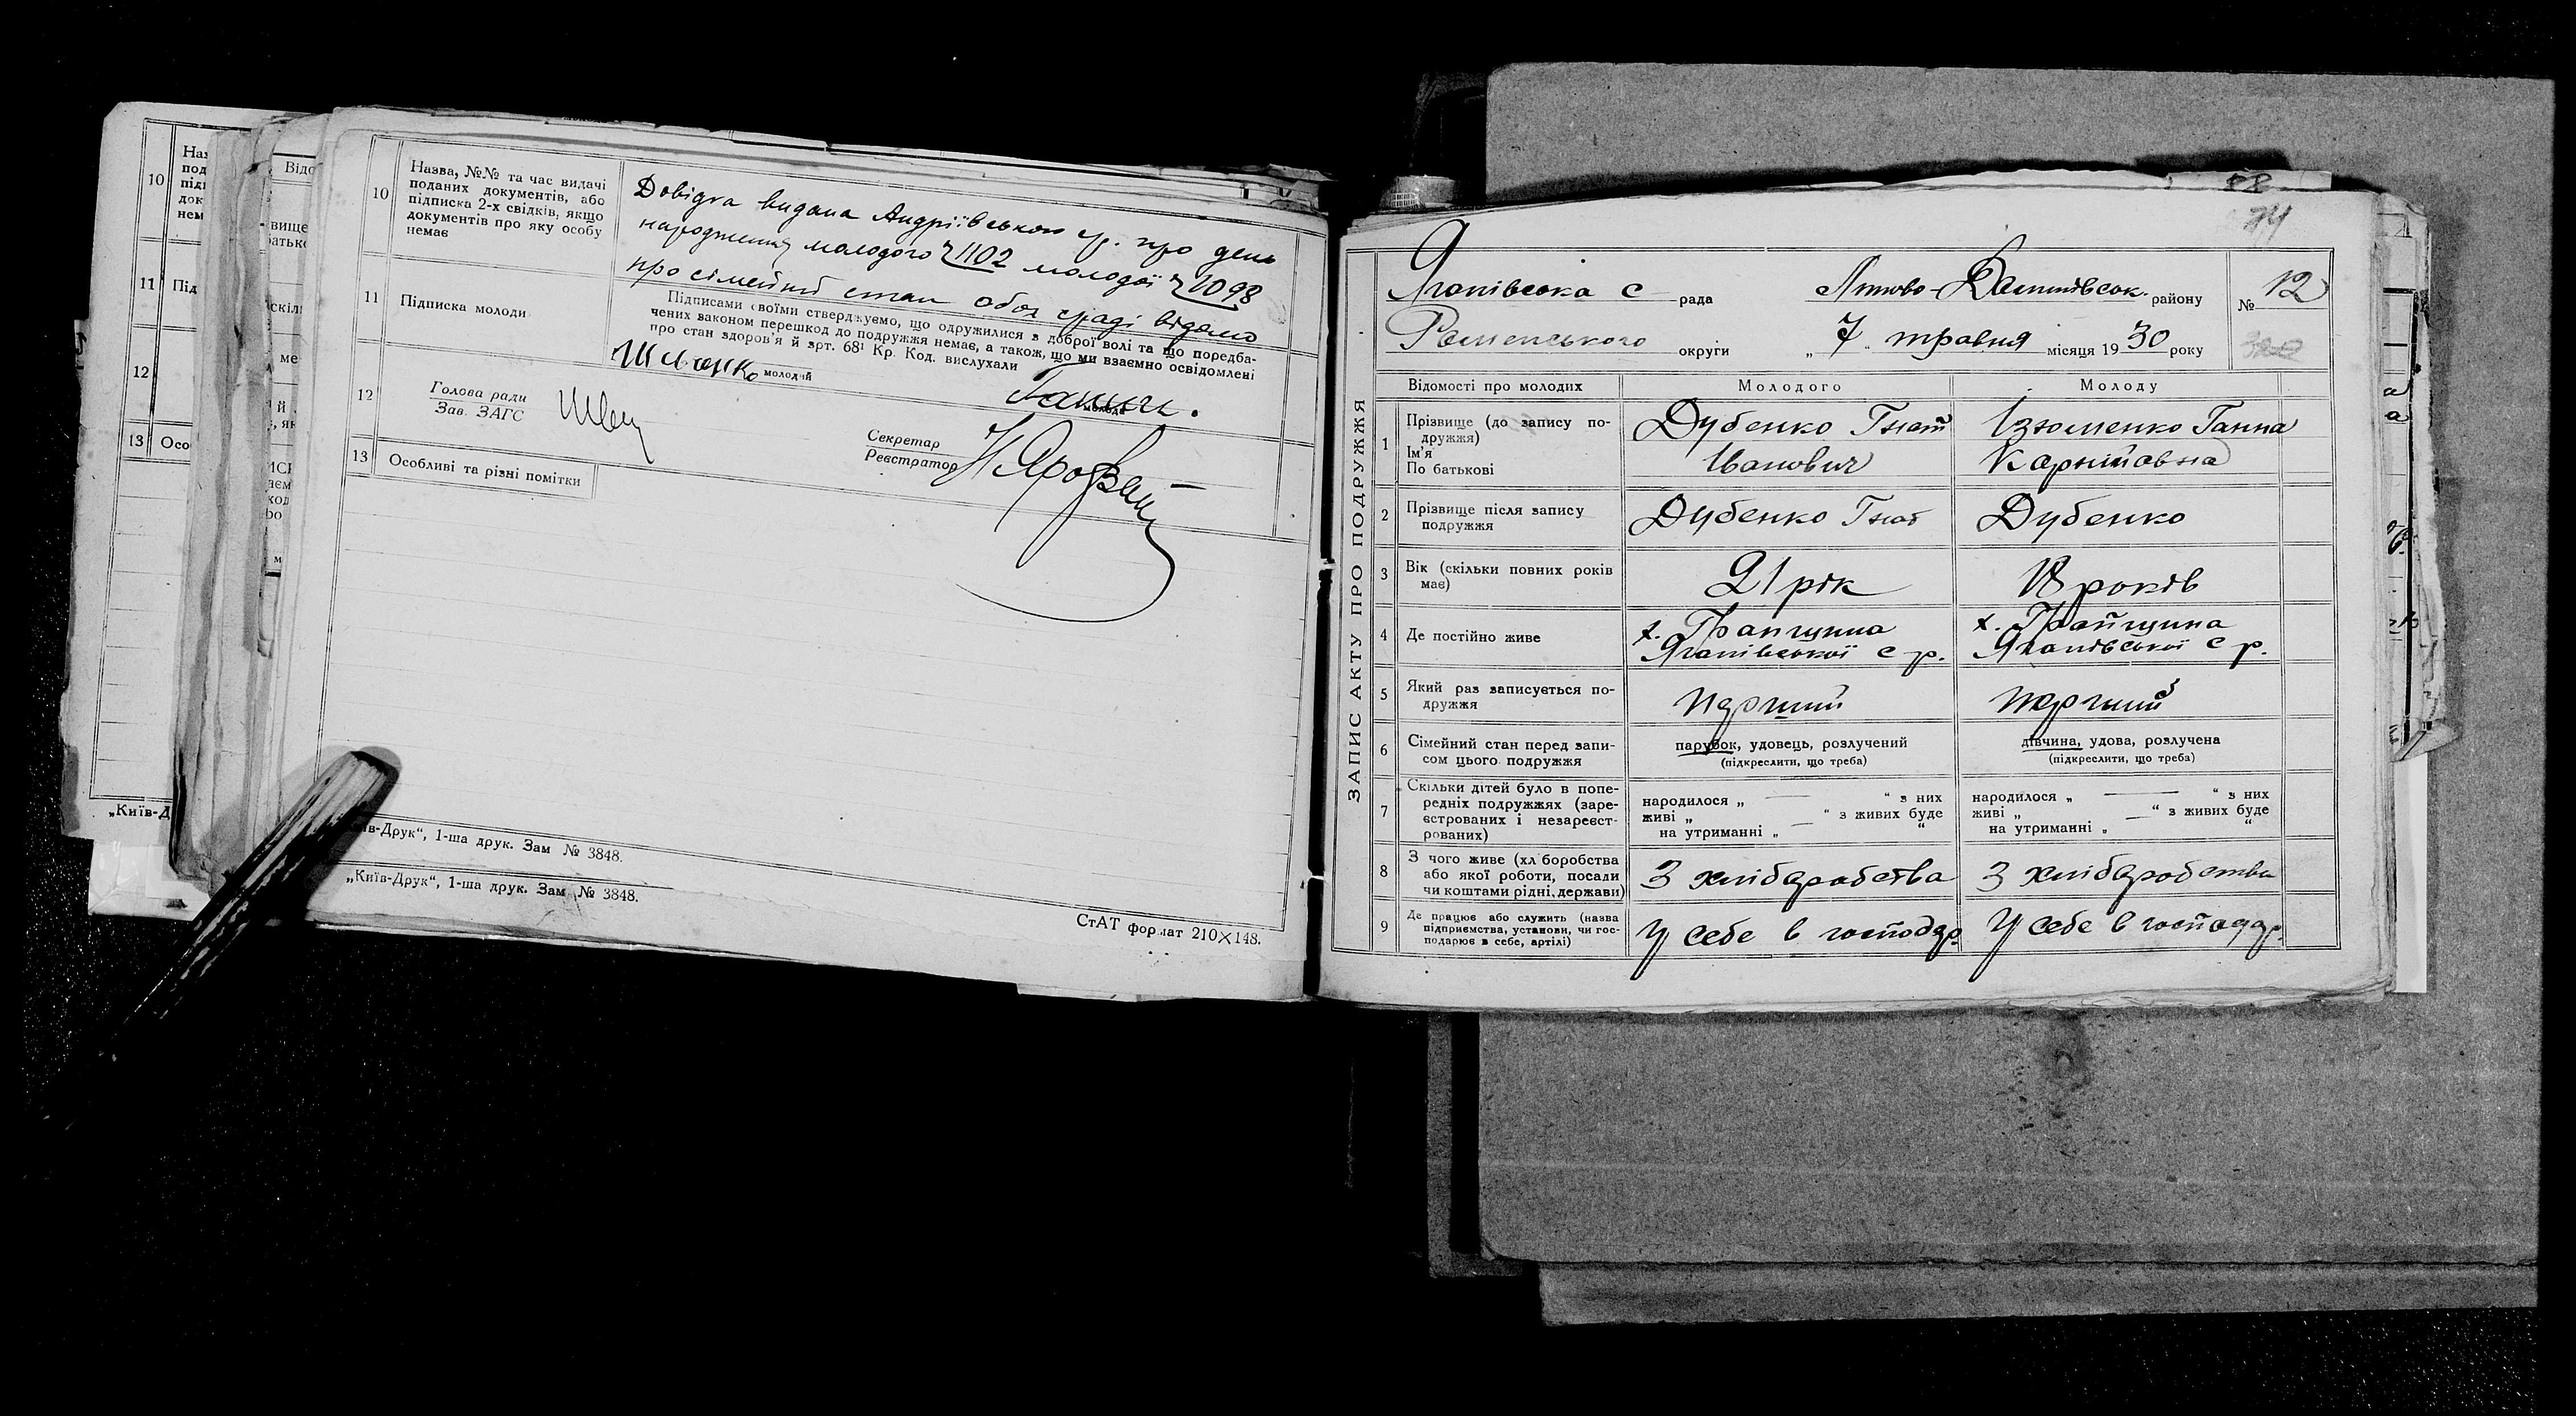 10
11
12
13
10 Назва, №№ та час видачі
поданих документів, або
підписка 2-х свідків, якщо
документів про яку особу
немає
Довідка видана Андріївською ср. про день
народження молодого 1102 молодої 1098
про сімейний стан обох сраді відомо
11 Підписка молоди
Підписами своїми стверджуємо, що одружилися з доброї волі та що поредба-
чених законом перешкод до подружжя немає, а також, що ми взаємно освідомлені
про стан здоров'я й арт. 68¹ Кр. Код. вислухали
молодий
молода
12 Голова ради
Зав. ЗАГС
Секретар
Реєстратор
13 Особливі та різні помітки
„Київ-Друк“, 1-ша друк. Зам № 3848.
„Київ-Друк“, 1-ша друк. Зам № 3848.
СтАТ формат 210×148.
ЗАПИС АКТУ ПРО ПОДРУЖЖЯ
Ягапівська с рада
району № 12
Роменського округи „ 7 „ травня місяця 1930 року
Відомості про молодих Молодого Молоду
1 Прізвище (до запису по-
дружжя)
Ім'я
По батькові
Дубенко Гнат
Іванович
Ізюменко Ганна
Карпівна
2 Прізвище після запису
подружжя
Дубенко Гнат
Дубенко
3 Вік (скільки повних років
має)
21 рік
18 років
4 Де постійно живе
Ягапівської с р.
Ягапівської с р.
5 Який раз записується по-
дружжя
перший
перший
6 Сімейний стан перед запи-
сом цього подружжя
парубок, удовець, розлучений
(підкреслити, що треба)
дівчина, удова, розлучена
(підкреслити, що треба)
7 Скільки дітей було в попе-
редніх подружжях (заре-
єстрованих і незареєст-
рованих)
народилося „ — “ з них
живі „ — “ з живих буде
на утриманні „ “
народилося „ — “ з них
живі „ — “ з живих буде
на утриманні „ “
8 З чого живе (хліборобства
або якої роботи, посади
чи коштами рідні, держави)
З хліборобства
З хліборобства
9 Де працює або служить (назва
підприємства, установи, чи гос-
подарює в себе, артілі)
У себе в господар.
У себе в господар.